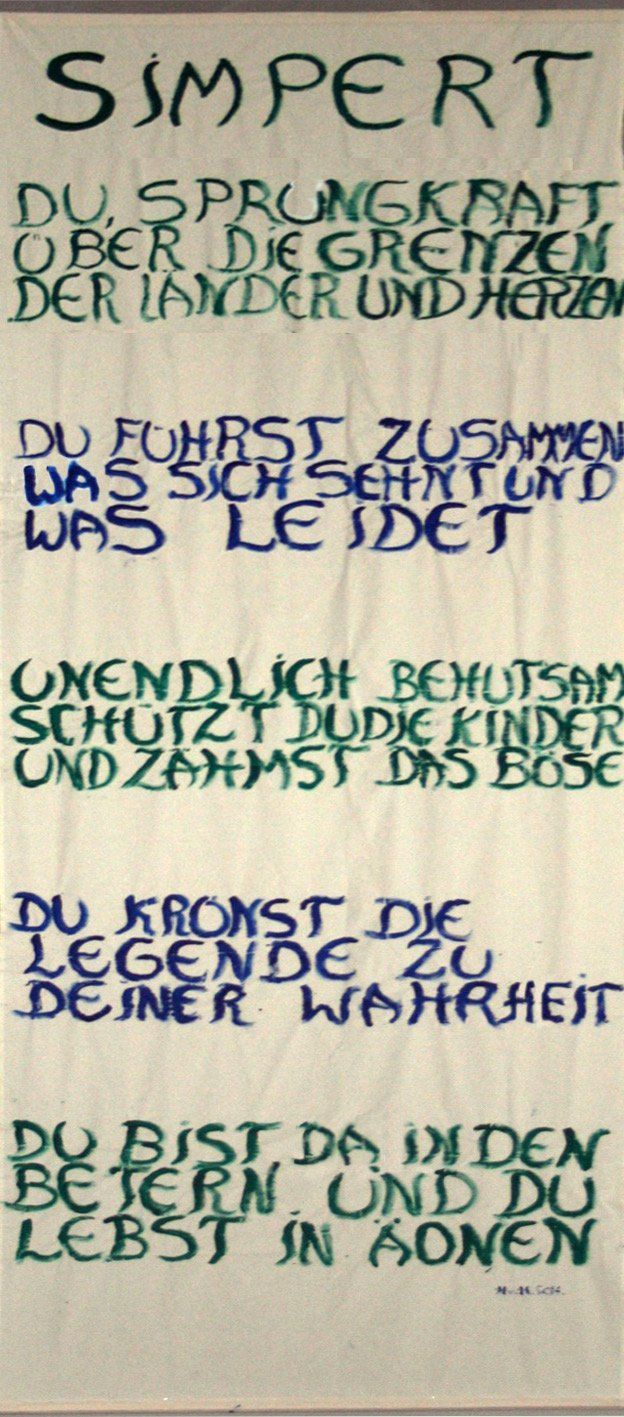 SIMPERT
DU, SPRUNGKRAFT
ÜBER DIE GRENZEN
DER LÄNDER UND HERZEN
DU FÜHRST ZUSAMMEN
WAS SICH SEHNT UND
WAS LEIDET
UNENDLICH BEHUTSAM
SCHÜTZT DU DIE KINDER
UND ZÄHMST DAS BÖSE
DU KRÖNST DIE
LEGENDE ZU
DEINER WAHRHEIT
DU BIST DA IN DEN
BETERN UND DU
LEBST IN ÄONEN